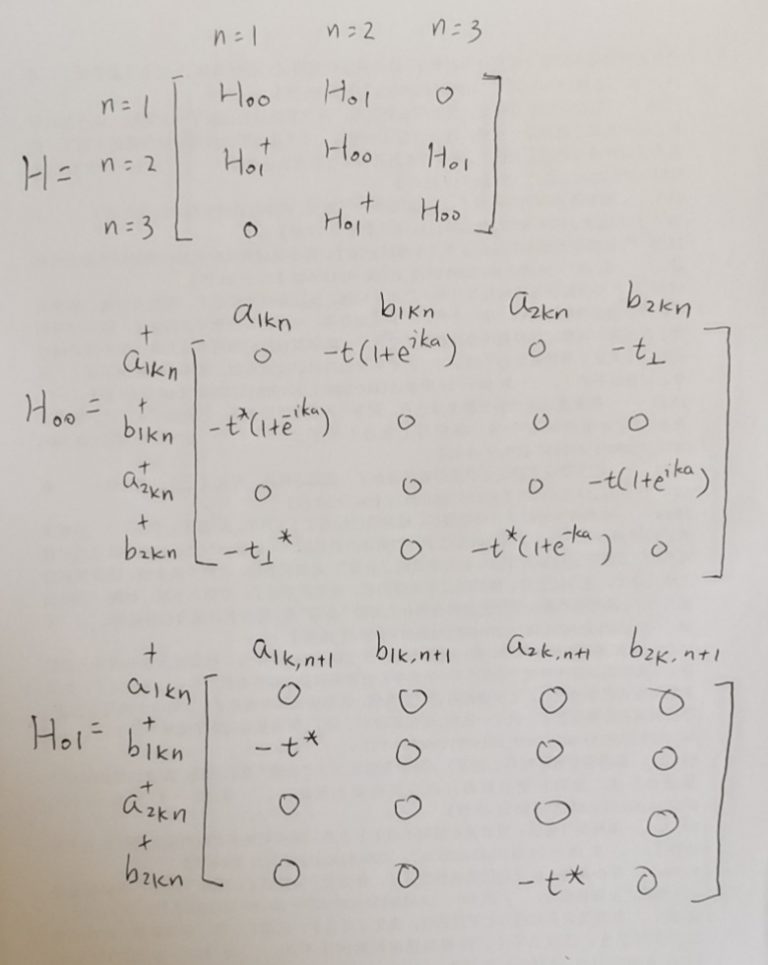 n=1 n=2 n=3
n=1 H₀₀ H₀₁ 0
H= n=2 H₀₁⁺ H₀₀ H₀₁
n=3 0 H₀₁⁺ H₀₀
a₁ₖₙ b₁ₖₙ a₂ₖₙ b₂ₖₙ
a₁ₖₙ⁺ 0 -t(1+e^{ika}) 0 -t⊥
H₀₀= b₁ₖₙ⁺ -t*(1+e^{-ika}) 0 0 0
a₂ₖₙ⁺ 0 0 0 -t(1+e^{ika})
b₂ₖₙ⁺ -t⊥* 0 -t*(1+e^{-ka}) 0
a₁ₖ,ₙ₊₁ b₁ₖ,ₙ₊₁ a₂ₖ,ₙ₊₁ b₂ₖ,ₙ₊₁
a₁ₖₙ⁺ 0 0 0 0
H₀₁= b₁ₖₙ⁺ -t* 0 0 0
a₂ₖₙ⁺ 0 0 0 0
b₂ₖₙ⁺ 0 0 -t* 0